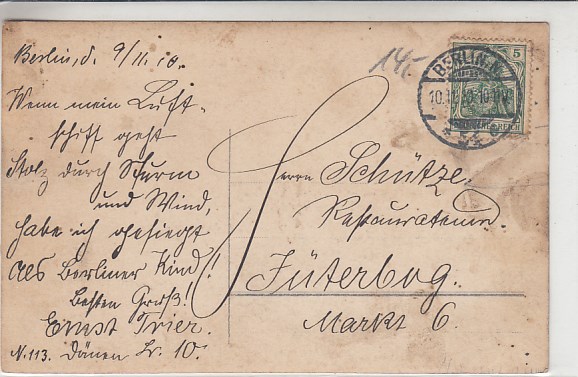 Berlin, d. 9/11.10.
Wenn mein Luft-
schiff geht
Stolz durch Sturm
und Wind,
habe ich gesiegt
als Berliner Kind!
Besten Gruß!
Ernst Trier.
N.113. Dänen Str. 10.
14.
BERLIN N.
5
REICH
Herrn Schütze
Restaurateur
Jüterbog.
Markt 6.